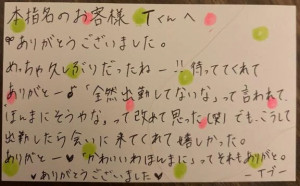 本指名のお客様 Tくんへ
ありがとうございました。
めっちゃ久しぶりだったねー!! 待っててくれて
ありがとー♪「全然出勤してないな」って言われて、
ほんまにそうやな、って改めて思った(笑) でも、こうして
出勤したら会いに来てくれて嬉しかった。
ありがとー♥「かわいいわほんまに」ってそれもありがと。
♥ありがとうございました♥